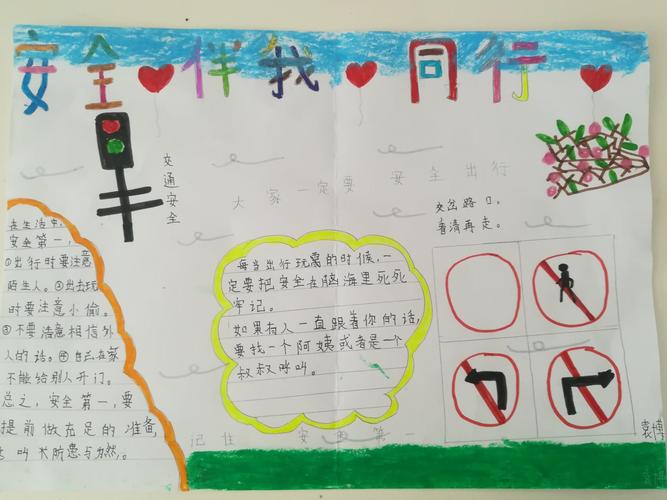 安全伴我同行
交通安全
大家一定要安全出行
交岔路口，
看清再走。
在生活中，
安全第一，
①出行时要注意
陌生人。②出去玩
时要注意小偷。
③不要随意相信外
人的话。④自己在家
不能给别人开门。
总之，安全第一，要
提前做充足的准备，
叫大防患与为然。
每当出行玩的时候，一
定要把安全在脑海里死死
牢记。
如果有人一直跟着你的话，
要找一个阿姨或者是一个
叔叔呼叫。
记住安第一
袁博